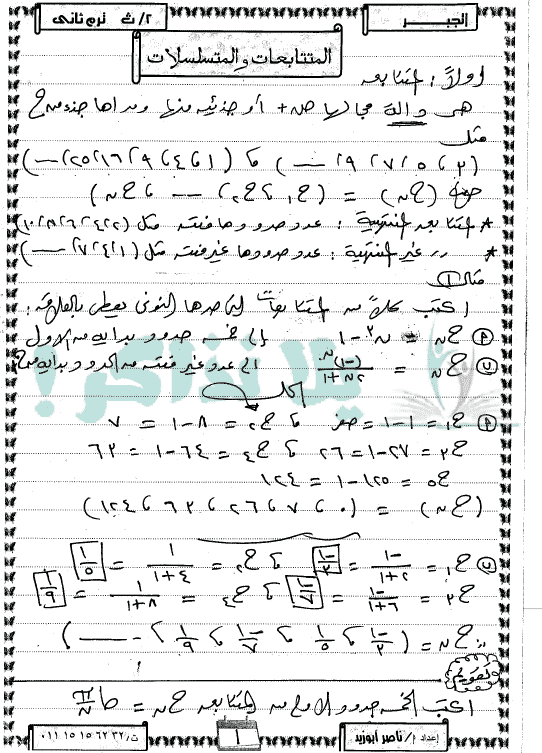 الجبر
٢/ث ترم ثانى
المتتابعات والمتسلسلات
اولاً : المتتابعه
هى دالة مجالها صـ+ أو جزئيه منها ومداها جزء من ح
مثل
(٣ ، ٥ ، ٧ ، ٩ ، ـــ) ، (١ ، ٤ ، ٩ ، ١٦ ، ٢٥ ، ـــ)
(حن) = (ح١ ، ح٢ ، ـــ ، حن)
* المتتابعه المنتهية : عدد حدودها منته مثل (٢ ، ٤ ، ٦ ، ٨ ، ١٠)
* غير المنتهية : عدد حدودها غير منته مثل (١ ، ٤ ، ٧ ، ـــ)
مثال ١
اكتب كلاً من المتتابعات التى حدها النونى يعطى بالعلاقه :
(أ) حن = ن٣ - ١ إلى خمسه حدود بدايه من الاول
(ب) حن = (-١)ن / (٢ن + ١) الى عدد غير منته من الحدود بدايه من ح١
الحل
(أ) ح١ = ١ - ١ = صفر ، ح٢ = ٨ - ١ = ٧
ح٣ = ٢٧ - ١ = ٢٦ ، ح٤ = ٦٤ - ١ = ٦٣
ح٥ = ١٢٥ - ١ = ١٢٤
(حن) = (٠ ، ٧ ، ٢٦ ، ٦٣ ، ١٢٤)
(ب) ح١ = -١/(٢+١) = -١/٣ ، ح٢ = ١/(٤+١) = ١/٥
ح٣ = -١/(٦+١) = -١/٧ ، ح٤ = ١/(٨+١) = ١/٩
∴ حن = (-١/٣ ، ١/٥ ، -١/٧ ، ١/٩ ، ـــ)
تقويم
اكتب الخمسه حدود الاولى من المتتابعه حن = طا π/ن
إعداد أ/ ناصر أبوزيد
١
ت/ ٠١١ ١٥ ١٥ ٦٢ ٣٢
يلا نذاكر !